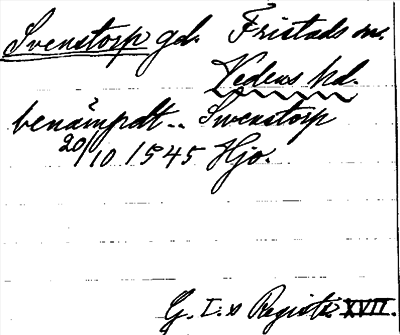 Svenstorp gd. Fristads sn.
Vedens hd.
benämndt.. Swenstorp
20/10 1545 Hjo.
G. I.s Registr. XVII.